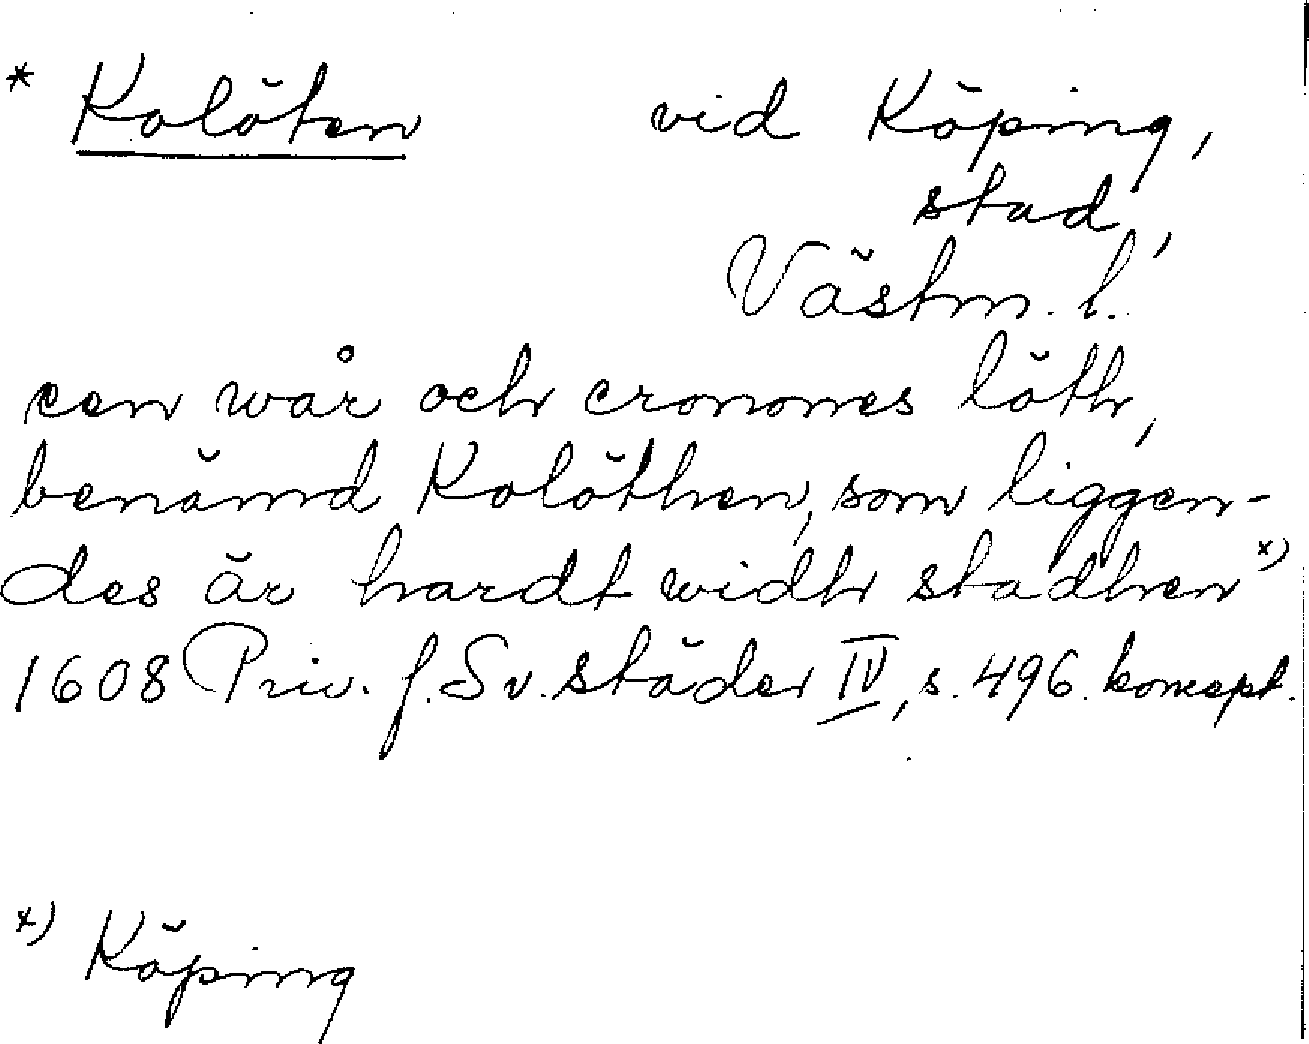 * Kolöten vid Köping,
stad,
Västm. l.
een wår och cronones löth,
benämd Kolöthen, som liggen-
des är hardt widh stadhen x)
1608 Priv. f. Sv. städer IV, s. 496. koncept.
x) Köping